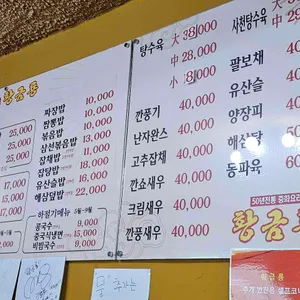 황금룡
25,000
25,000
25,000
17,000
15,000
22,000
짜장밥 10,000
짬뽕밥 10,000
볶음밥 10,000
삼선볶음밥 13,000
잡채밥 13,000
잡탕밥 18,000
유산슬밥 18,000
해삼덮밥 22,000
하절기메뉴 5월~9월
콩국수 9,000
중국식냉면
비빔국수 9,000
탕수육 大 38,000
中 28,000
小 18,000
깐풍기 40,000
난자완스 40,000
고추잡채 40,000
깐쇼새우 40,000
크림새우 40,000
깐풍새우 40,000
사천탕수육 大
中
팔보채
유산슬
양장피
해삼탕
동파육
50년전통 중화요리
황금
황금룡